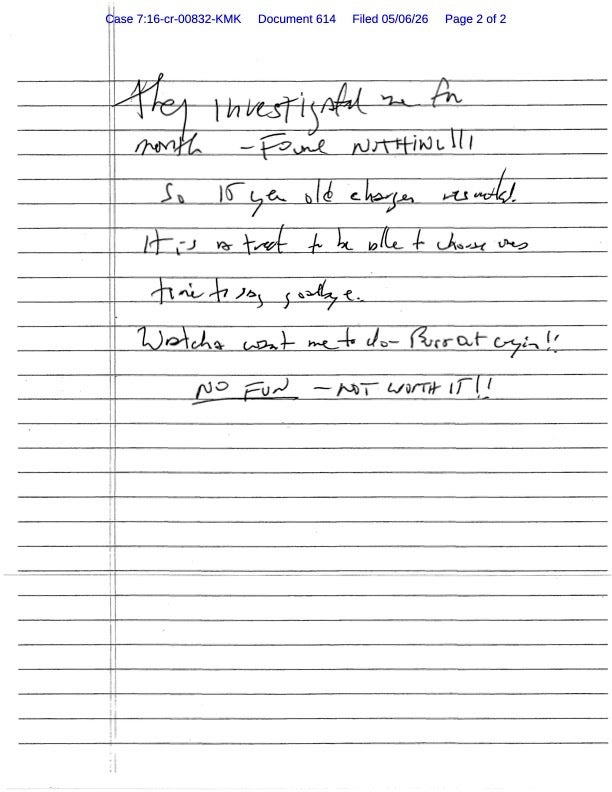 Case 7:16-cr-00832-KMK Document 614 Filed 05/06/26 Page 2 of 2
They investigated me for
month - Found NOTHING!!!
So 15 year old charges resulted!
It is a treat to be able to choose
time to say goodbye.
Watcha want me to do - Burst out cryin!!
NO FUN - NOT WORTH IT!!